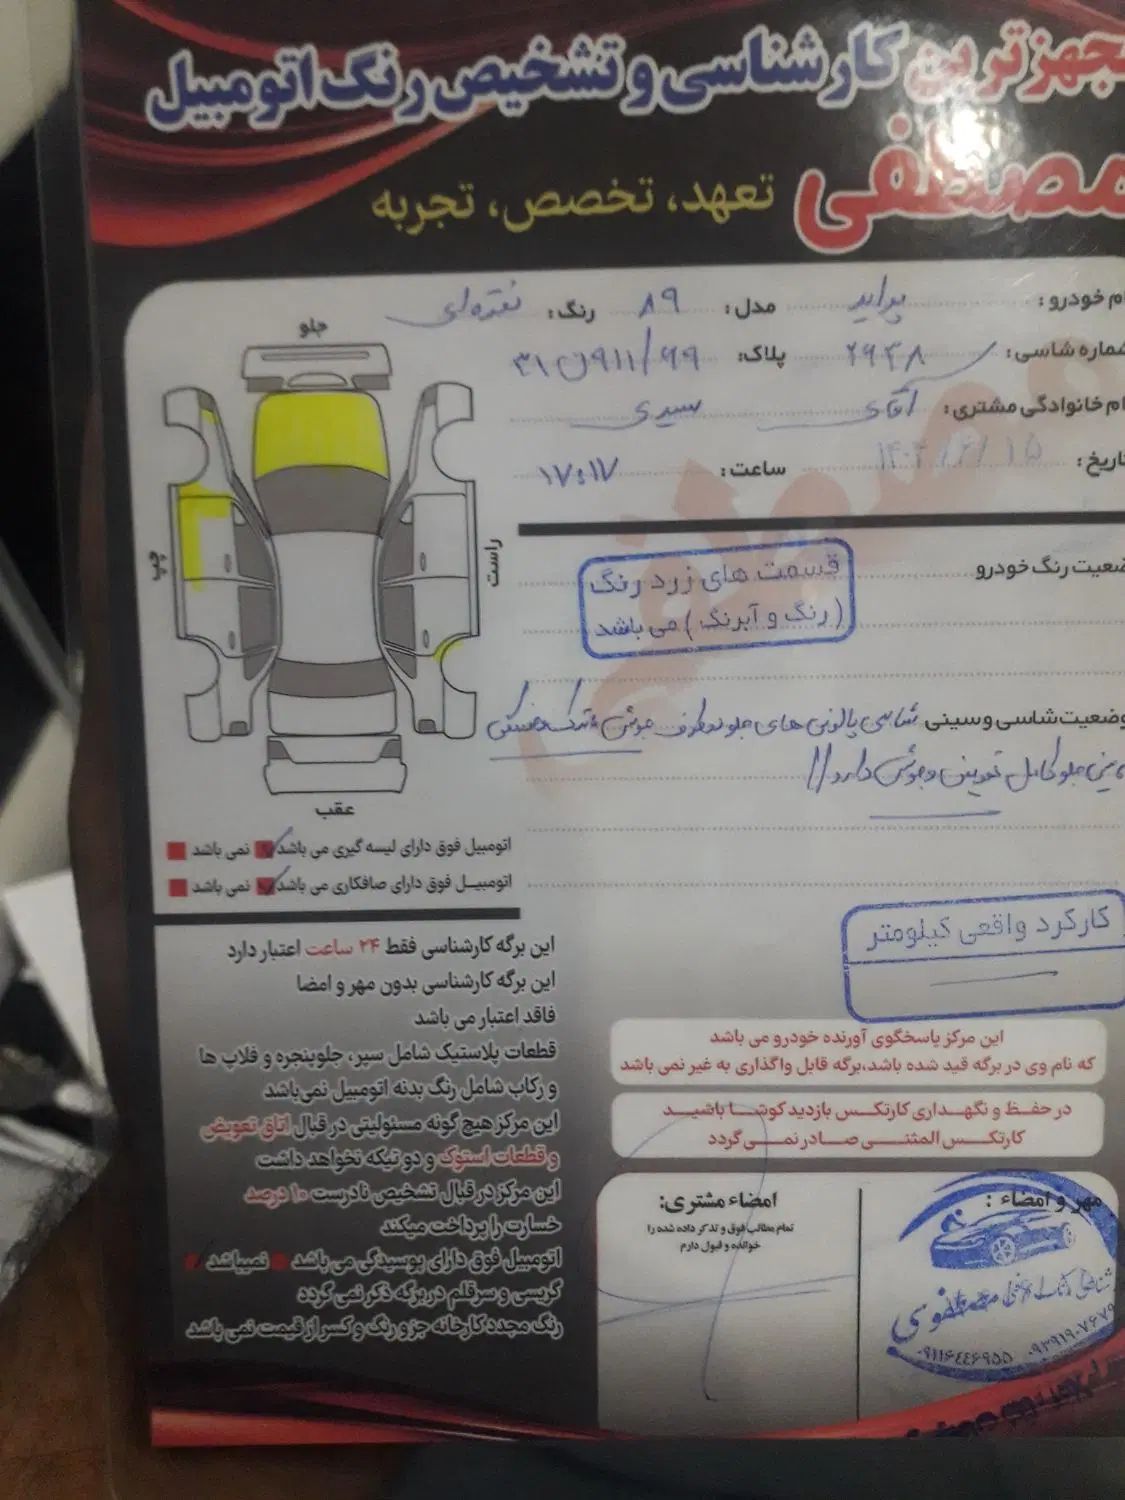 مجهزترین کارشناسی و تشخیص رنگ اتومبیل
مصطفی
تعهد، تخصص، تجربه
نام خودرو: پراید مدل: ۸۹ رنگ: نقره‌ای
شماره شاسی: پلاک:
نام خانوادگی مشتری: آقای سیدی
تاریخ: ۱۵ ساعت: ۱۷:۱۷
جلو
چپ
راست
عقب
وضعیت رنگ خودرو
قسمت های زرد رنگ
(رنگ و آبرنگ) می باشد
وضعیت شاسی و سینی شاسی پالونی های جلو دوطرف جوش
سینی جلو کامل تعویض و جوش دارد //
اتومبیل فوق دارای لیسه گیری می باشد نمی باشد
اتومبیل فوق دارای صافکاری می باشد نمی باشد
کارکرد واقعی کیلومتر
این برگه کارشناسی فقط ۲۴ ساعت اعتبار دارد
این برگه کارشناسی بدون مهر و امضا
فاقد اعتبار می باشد
قطعات پلاستیک شامل سپر، جلوپنجره و فلاپ ها
و رکاب شامل رنگ بدنه اتومبیل نمی‌باشد
این مرکز هیچ گونه مسئولیتی در قبال اتاق تعویض
و قطعات استوک و دو تیکه نخواهد داشت
این مرکز در قبال تشخیص نادرست ۱۰ درصد
خسارت را پرداخت میکند
اتومبیل فوق دارای پوسیدگی می باشد نمیباشد
گریسی و سرقلم در برگه ذکر نمی گردد
رنگ مجدد کارخانه جزو رنگ و کسر از قیمت نمی باشد
این مرکز پاسخگوی آورنده خودرو می باشد
که نام وی در برگه قید شده باشد،برگه قابل واگذاری به غیر نمی باشد
در حفظ و نگهداری کارتکس بازدید کوشا باشید
کارتکس المثنی صادر نمی گردد
امضاء مشتری:
تمام مطالب فوق و تذکر داده شده را
خوانده و قبول دارم
مهر و امضاء: